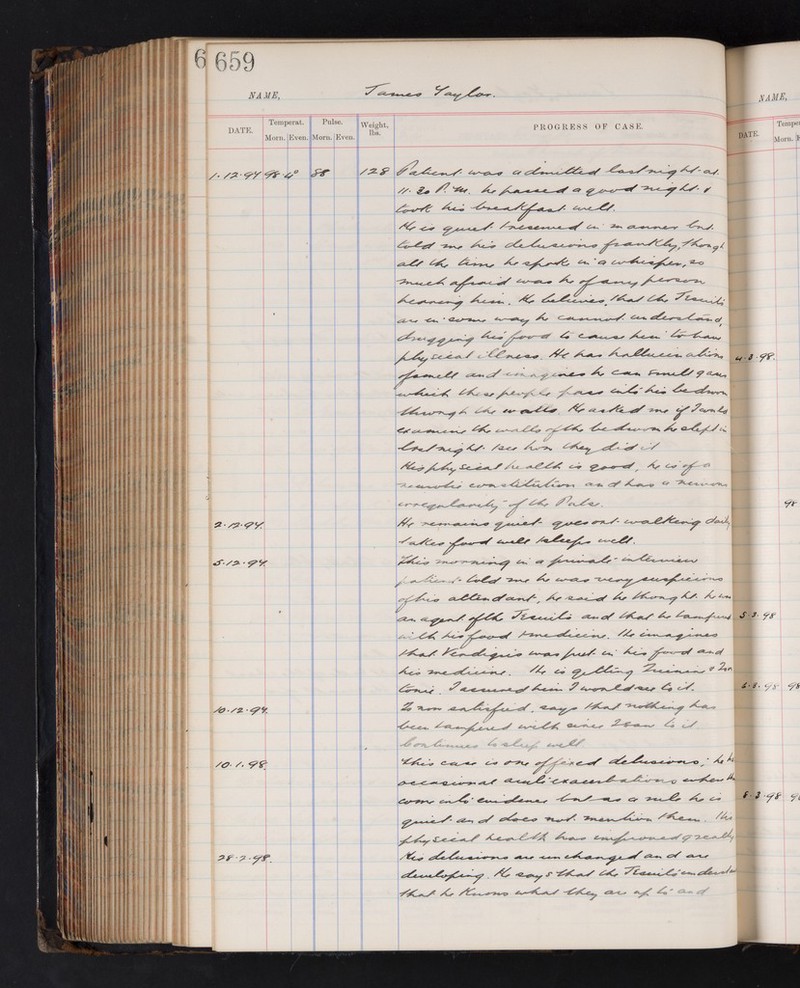 6 659
NAME, James Taylor.
NAME,
DATE. Temperat. Pulse. Weight, lbs. PROGRESS OF CASE.
Morn. Even. Morn. Even.
DATE. Temper
Morn.
1.12.97 98.4° 88 128 Patient was admitted last night at
11.30 P.M. he passed a good night &
took his breakfast well.
He is quiet & reserved in manner but
told me his delusions frankly, though
all the time he spoke in a whisper, so
much afraid was he of any person
hearing him. He believes that the Jesuits
are in some way he cannot understand,
drugging his food to cause him to have
physical illness. He has hallucinations
of smell and imagines he can smell gases
which these people pass into his bedroom
through the walls. He asked me if I would
examine the walls of the bedroom he slept in
last night & see how they did it
His physical health is good, he is of a
neurotic constitution and has a nervous
irregularity of the Pulse.
2.12.97. He remains quiet goes out walking daily
takes food well & sleeps well.
5.12.97 This morning in a private interview
patient told me he was very suspicious
of his attendant, he said he thought he was
an agent of the Jesuits and that he tampered
with his food & medicine. He imagines
that Verdigris was put in his food and
his medicine. He is getting Quinine &
tonic. I assured him I would see to it.
10.12.97. Is now satisfied, says that nothing has
been tampered with since I saw to it
Continues to sleep well
10.1.98. This case is one of fixed delusions; he has
occasional acute exacerbations when they
come into evidence but as a rule he is
quiet and does not mention them. His
physical health has improved greatly
28.2.98. His delusions are unchanged and are
developing. He says that the Jesuits understand
that he knows what they are up to and
4.3.98.
98
5.3.98
6.3.98 98
8.3.98 98